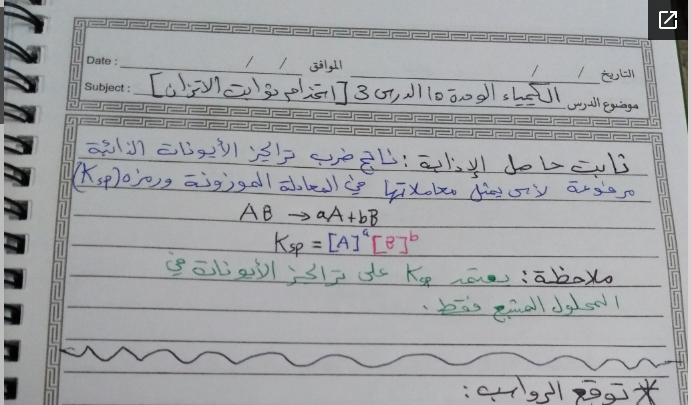 Date : / / الموافق / / التاريخ
Subject : الكيمياء الوحدة 10 الدرس 3 [استخدام ثوابت الاتزان] موضوع الدرس
ثابت حاصل الإذابة : ناتج ضرب تراكيز الأيونات الذائبة
مرفوعة لأس يمثل معاملاتها في المعادلة الموزونة ورمزه (Ksp)
AB → aA + bB
Ksp = [A]ᵃ [B]ᵇ
ملاحظة : يعتمد Ksp على تراكيز الأيونات في
المحلول المشبع فقط .
* توقع الرواسب :